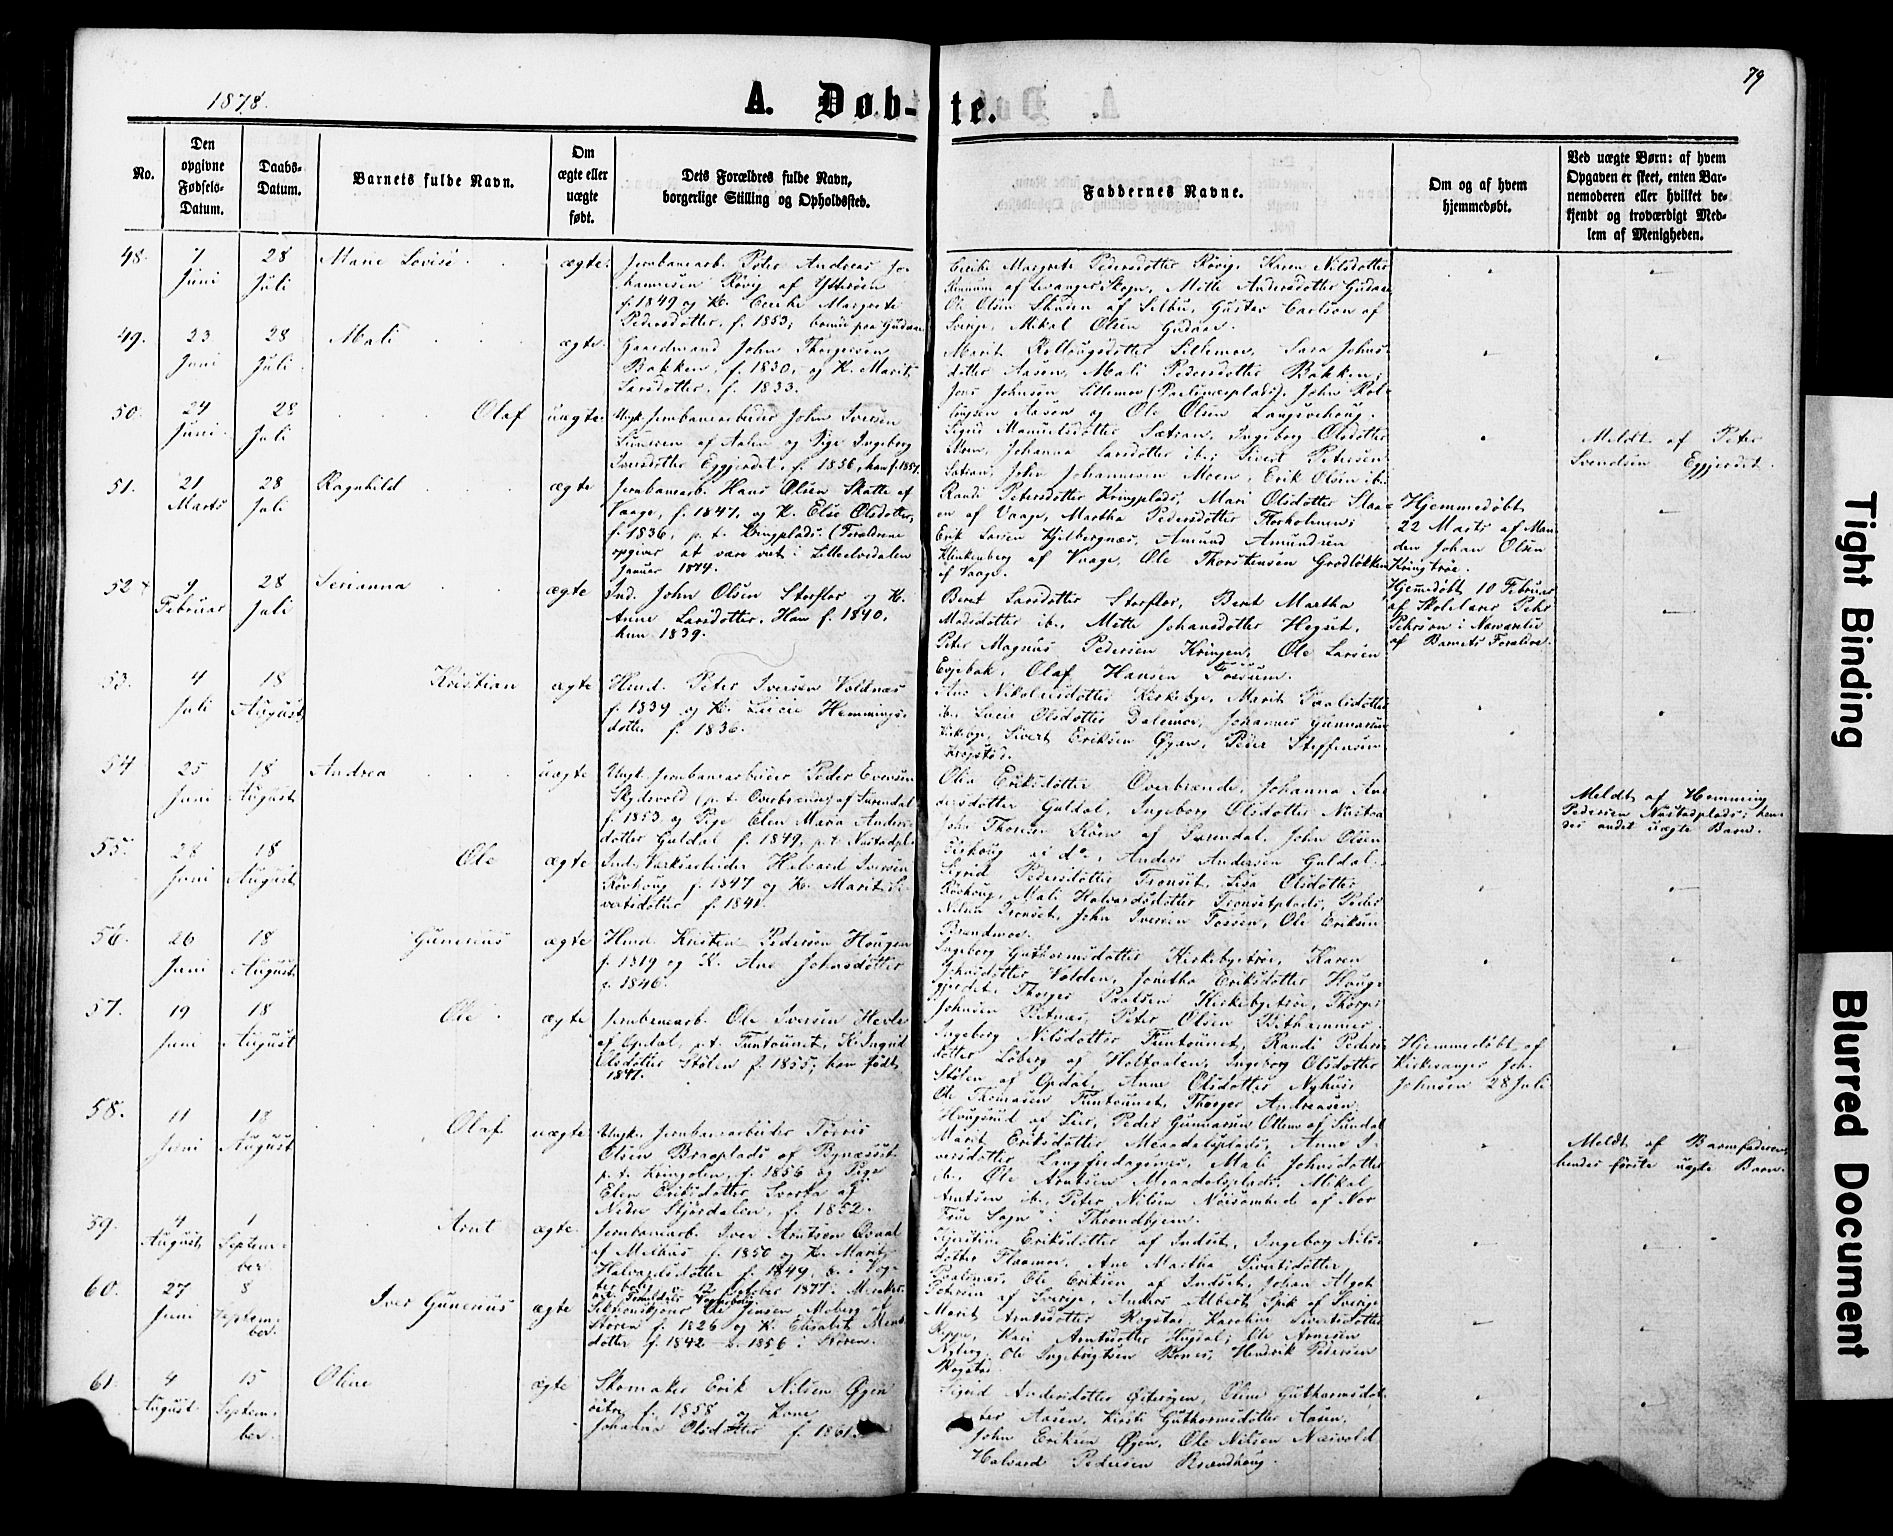 1878.
A. Døb-te.
79
No.
Den opgivne Fødsels-Datum.
Daabs-Datum.
Barnets fulde Navn.
Om ægte eller uægte født.
Dets Forældres fulde Navn, borgerlige Stilling og Opholdssted.
Faddernes Navne.
Om og af hvem hjemmedøbt.
Ved uægte Børn: af hvem Opgaven er skeet, enten Barnemoderen eller hvilket bekjendt og troværdigt Medlem af Menigheden.
48. 7 Juni 28 Juli Marie Lovise ægte.
Jernbanearb. Peter Andreas Johannesen Røvig af Ytterøen
f. 1849 og K. Margrete
Pedersdotter, f. 1853; boende paa Gudaa
Margrete Pedersdotter Røvig, Karen Nilsdotter
af Levanger Skogn, Mette Andersdotter Gudaa
Ole Olsen af Selbu, Gustav Carlson af
Sverige, Mikal Olsen Gudaa.
49. 23 Juni 28 Juli Mali ægte.
Gaardmand John Thorgersen
Bakken, f. 1830, og K. Marit
Larsdotter, f. 1833.
Marit Lillemo, Sara Johnsdotter Aasen, Mali Pedersdotter Bakken;
Jens Johnsen Lillemo
Aasen og Ole Olsen
50. 24 Juni 28 Juli Olaf uægte
Ungk. Jernbanearbeider John Iversen
af Aalen og Pige Ingeborg
Eggjerdet, f. 1856, han f. 1857.
Sigrid Sætran, Ingeborg Olsdotter
Moen, Johanna Larsdotter ib.; Sivert Petersen
Sætran, John Johannesen Moen, Erik Olsen ib.
Meldt af Peter
Svendsen Eggjerdet.
51. 21 Marts 28 Juli Ragnhild ægte
Jernbanearb. Hans Olsen Skatte af
Vaage, f. 1847, og K. Else Olsdotter,
f. 1836, p. t. Kringplads. (Forældrene
opgiver at være viet i Lilleelvedalen
Januar 1874.
Randi Petersdotter Kringplads, Mari Olsdotter
af Vaage, Martha Pedersdotter Florholmen;
Erik Larsen Amund Amundsen
Klinkenberg af Vaage, Ole Thorstensen
af Vaage.
Hjemmedøbt
22 Marts af Manden Johan Olsen
Kringtrøe.
52 9 Februar 28 Juli Serianna ægte
Ind. John Olsen Storflor og K.
Anne Larsdotter. Han f. 1840,
hun 1839.
Beret Larsdotter Storflor, Beret Martha
Madsdotter ib., Mette Johansdotter Hegset,
Peter Magnus Pedersen Kringen, Ole Larsen
Evjebak, Olaf Hansen Fossum.
Hjemmedøbt 10 Februar
af Skolelærer Peter
Pehrson i Nærværelse
af Barnets Forældre.
53. 4 Juli 18 August Kristian ægte
Hmd. Peter Iversen Voldnæs
f. 1839 og K. Lucie Hemmingsdotter f. 1836.
Ane Nikolaisdotter Kirkeby, Marit Paalsdotter
ib. Lucie Olsdotter Dalemo, Johannes Gunnarsen
Kirkeby, Sivert Eriksen Øyan, Peder Steffensen
Krogstad.
54 25 Juni 18 August Andrea uægte
Ungk. Jernbanearbeider Peder Evensen
(p. t. Overbrænde) af Surendal
f. 1853 og Pige Elen Maria Andersdotter Guldal f. 1849, p. t. Nustadpl.
Olea Eriksdotter Overbrænde, Johanna Andersdotter Guldal, Ingeborg Olsdotter Nustad
John Thoresen Røen af Surendal, John Olsen
do, Anders Andersen Guldal.
Meldt af Hemming
Pedersen Nustadplads; hendes andet uægte Barn.
55. 28 Juni 18 August Ole ægte
Ind. Værksarbeider Helvard Iversen
Røskoug f. 1847 og K. Marit Sivertsdotter f. 1841.
Sigrid Pedersdotter Tronset, Lisa Olsdotter
Røskoug, Mali Halvardsdotter Tronsetplads, Peder
Nilsen Tronset, John Iversen Fossen, Ole Eriksen
Brændmoe.
56. 26 Juni 18 August Gunerius ægte
Hmd. Kristen Pedersen Hougen
f. 1819 og K. Ane Johnsdotter
f. 1846.
Ingeborg Guthormsdotter Kirkebytrøe, Karen
Johnsdotter Volden, Jonetha Eriksdotter Hougjerdet, Thorger Paalsen Kirkebytrøe, Thorger
Johnsen Peter Olsen
57. 19 Juni 18 August Ole ægte
Jernbanearb. Ole Iversen Hevle
af Opdal, p. t. Funtaunet, K. Ingrid
Olsdotter Stølen f. 1855; han født
1847.
Ingeborg Nilsdotter Funtaunet, Randi Pedersdotter Løberg af Holtaalen, Ingeborg Olsdotter
Stølen af Opdal, Anne Olsdotter Nyhus,
Ole Thomasen Funtaunet, Thorger Andreasen
Hougsrud af Lier, Peder Gunnarsen Ottem af Sundal
Hjemmedøbt af
Kirkesanger Joh.
Johnsen 28 Juli
58. 11 Juni 18 August Olaf uægte
Ungk. Jernbanearbeider Tørris
Olsen Braaplads af Bynæsset
p. t. Kringelen, f. 1856 og Pige
Elen Eriksdotter Svorka af
Nedre Stjørdalen, f. 1852.
Marit Eriksdotter Meraadalsplads, Anne Iversdotter Langfredagsnæs, Mali Johnsdotter
ib., Ole Arntsen Meraadalsplads, Mikal
Arntsen ib., Peter Nilsen af Vor
Frue Sogn i Throndhjem.
Meldt af Barnefaderen,
hendes første uægte Barn.
59. 4 August 1 September Arnt ægte.
Jernbanearb. Iver Arntsen Qvaal
af Melhus f. 1850 og K. Marit
Halvorsdotter f. 1849,
12 October 1877. Meraker
Kjerstine Eriksdotter af Indset, Ingeborg Nilsdotter Flaamo, Ane Martha Sivertsdotter
Paalsnæs, Ole Eriksen af Indset, Johan Algot
Peterson af Sverige, Anders Albert Spik af Sverige
60. 27 Juni 8 September Iver Gunerius ægte
Ole Jensen Moberg af
Støren f. 1826 og K. Elisabet
f. 1842 v. 1856 i Støren.
Marit Arntsdotter Rogstad, Karoline Sivertsdotter
Reppe, Kari Arntsdotter Hugdal; Ole Arnesen
Nyberg, Ole Ingebrigtsen Bones, Hendrik Pedersen
Rogstad
61. 4 August 15 September Oline ægte
Skomaker Erik Nilsen Øyen
f. 1858 og Kone
Johanna Olsdotter f. 1861.
Sigrid Andersdotter Østerøyen, Eline Guthormsdotter Aasen, Kirsti Guthormsdotter Aasen,
John Eriksen Øyen, Ole Nilsen Næsvold
Halvard Pedersen Brændhaug.
Tight Binding
Blurred Document